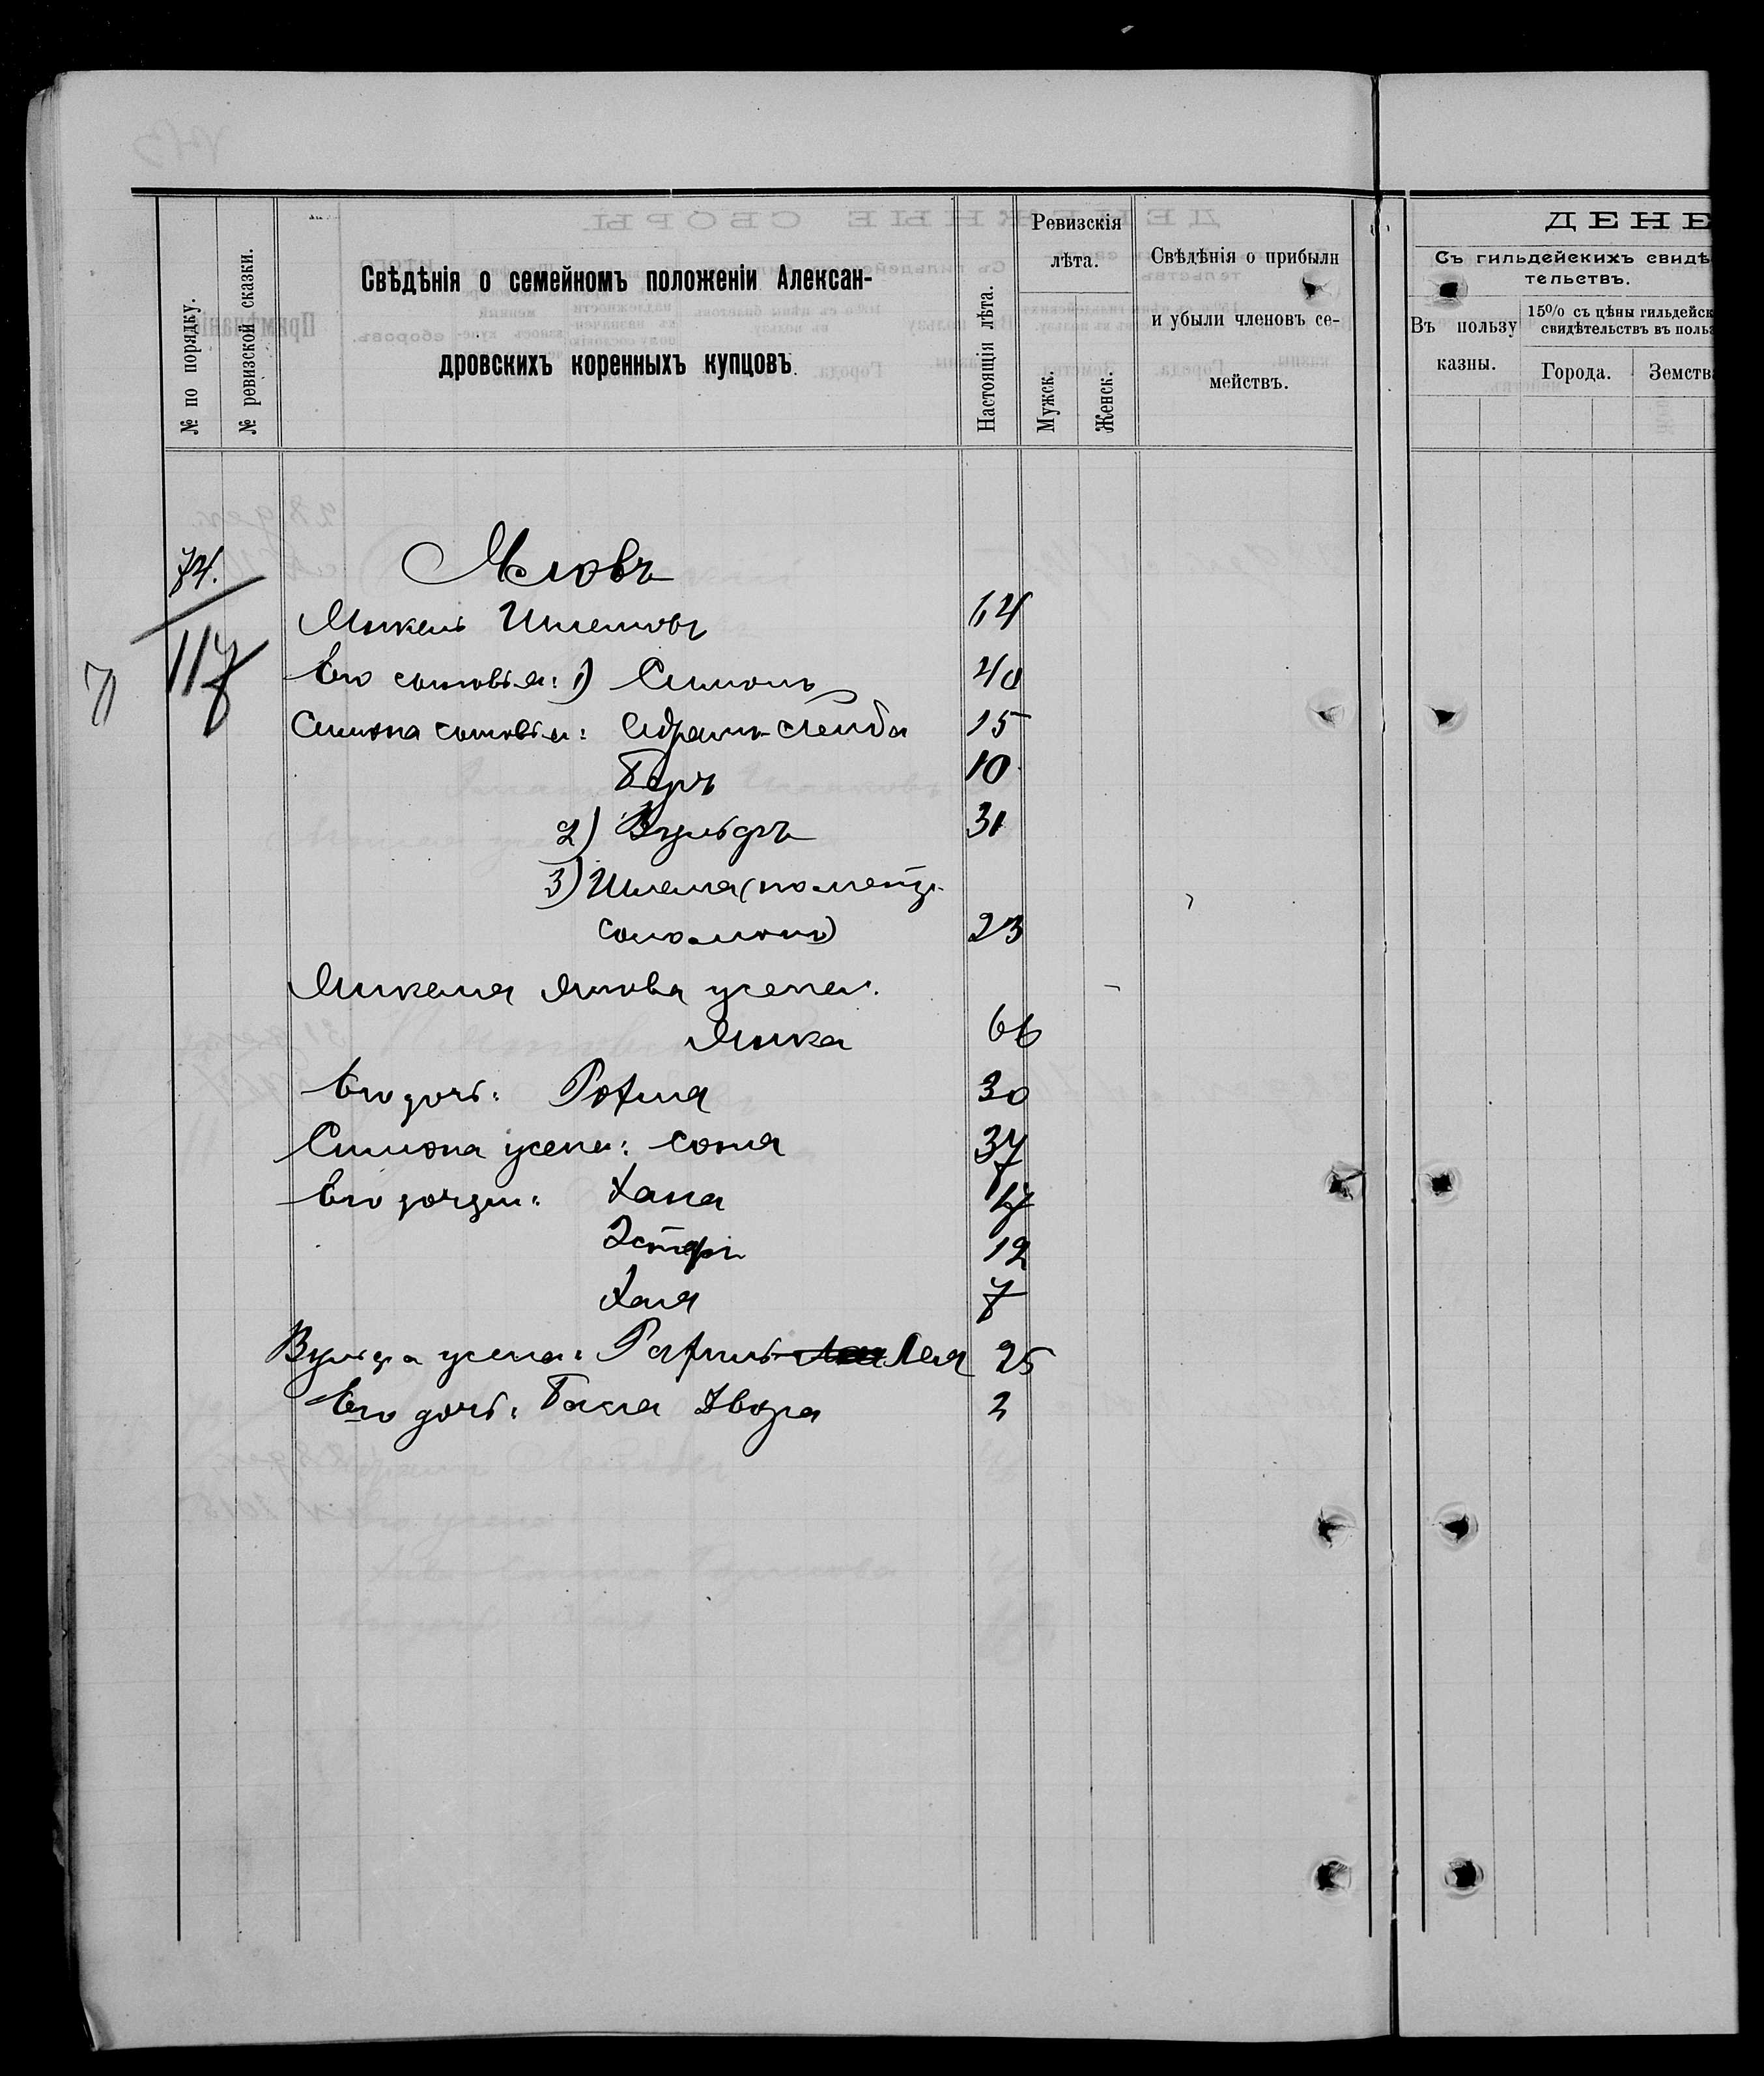 № по порядку.
№ ревизской сказки.
Свѣдѣнія о семейномъ положеніи Алексан-
дровскихъ коренныхъ купцовъ.
Настоящія лѣта.
Ревизскія
лѣта.
Мужск.
Женск.
Свѣдѣнія о прибыли
и убыли членовъ се-
мействъ.
ДЕНЕ
Съ гильдейскихъ свидѣ
тельствъ.
Въ пользу
казны.
15% съ цѣны гильдейск
свидѣтельствъ въ польз
Города.
Земств
74.
117
7
64
Его сыновья: 1) Симонъ 40
Симона сыновья: Абрамъ-Лейба 15
Беръ 10
2) Вульфъ 31
3) Шлема (по метр.
Соломонъ) 23
жена:
66
Его дочь: Рохля 30
Симона жена: Соня 37
Его дочери: Хана 17
Эстеръ 12
Хая 7
Вульфа жена: Рахиль Лея 25
Его дочь: Бася Двора 2